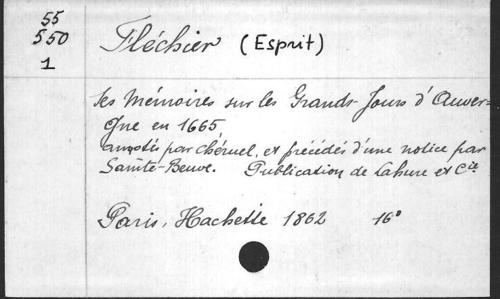 55
550
1
Fléchier (Esprit)
Ses Mémoires sur les Grands-Jours d'Auver-
gne en 1665
annotés par Chéruel, et précédés d'une notice par
Sainte-Beuve. Publication de Lahure et Cie
Paris, Hachette 1862 16°